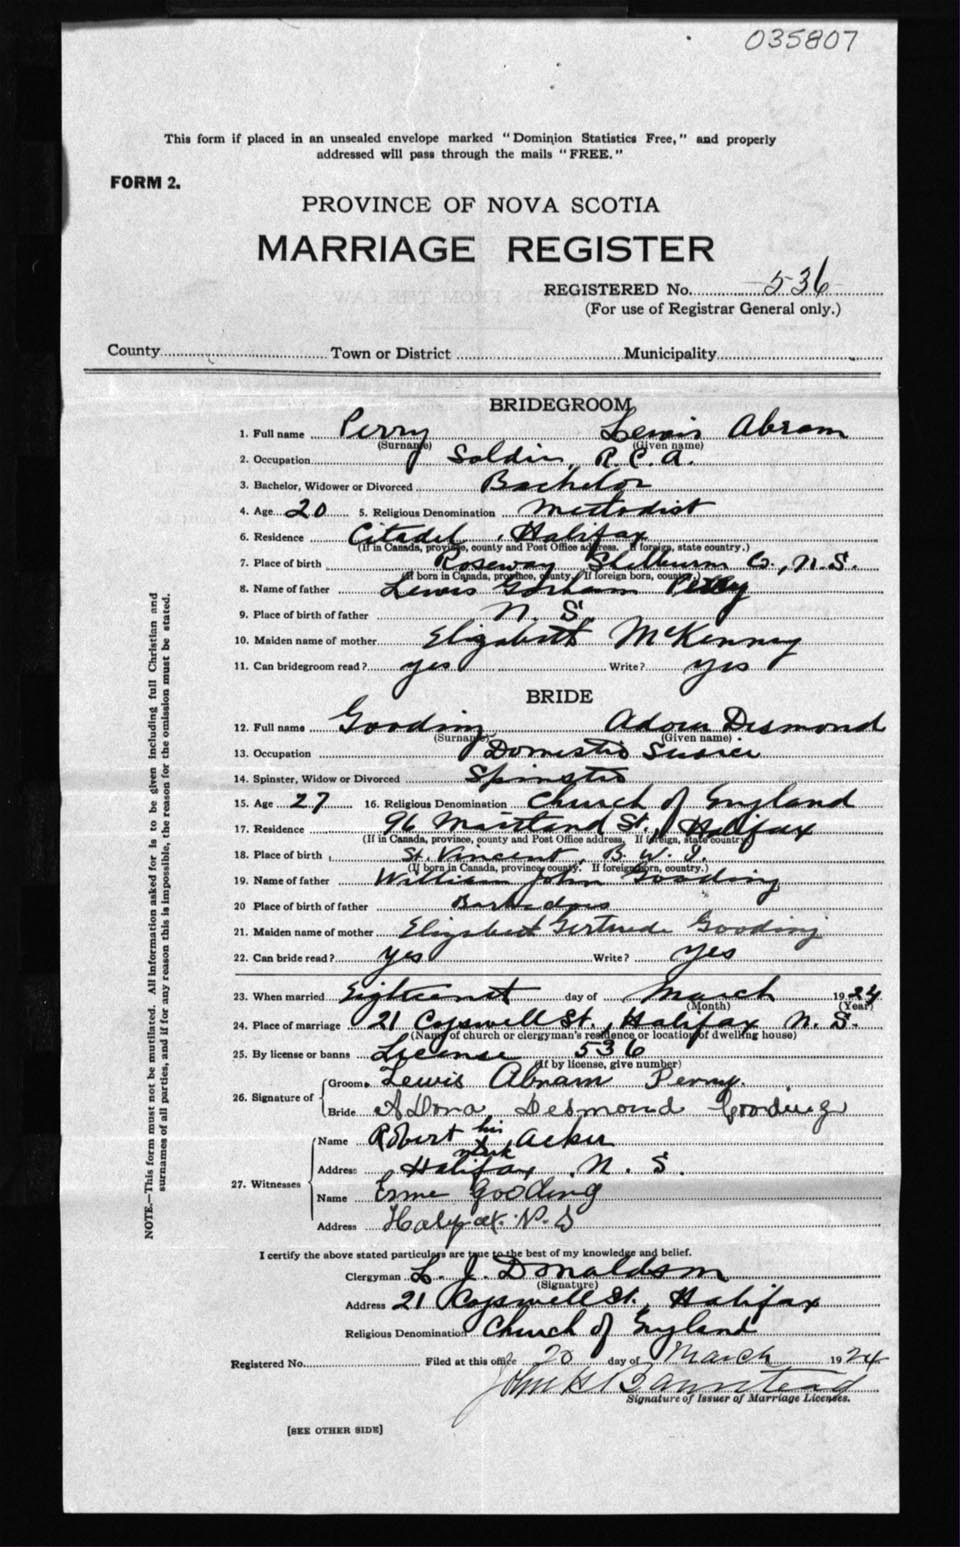 035807
This form if placed in an unsealed envelope marked "Dominion Statistics Free," and properly
addressed will pass through the mails "FREE."
FORM 2.
PROVINCE OF NOVA SCOTIA
MARRIAGE REGISTER
REGISTERED No. 536
(For use of Registrar General only.)
County Town or District Municipality
BRIDEGROOM
1. Full name Perry Lewis Abram
(Surname) (Given name)
2. Occupation Soldier, R.C.A.
3. Bachelor, Widower or Divorced Bachelor
4. Age 20 5. Religious Denomination Methodist
6. Residence Citadel, Halifax
(If in Canada, province, county and Post Office address. If foreign, state country.)
7. Place of birth Roseway Shelburne Co., N.S.
(If born in Canada, province, county. If foreign born, country.)
8. Name of father Lewis Gorham Perry
9. Place of birth of father N. S.
10. Maiden name of mother Elizabeth McKenney
11. Can bridegroom read? yes Write? yes
BRIDE
12. Full name Gooding Desmond
(Surname) (Given name)
13. Occupation Domestic
14. Spinster, Widow or Divorced Spinster
15. Age 27 16. Religious Denomination Church of England
17. Residence 96 Maitland St., Halifax
(If in Canada, province, county and Post Office address. If foreign, state country)
18. Place of birth St. Vincent, B.W.I.
(If born in Canada, province county. If foreign born, country.)
19. Name of father William John Gooding
20 Place of birth of father Barbados
21. Maiden name of mother Elizabeth Gertrude Gooding
22. Can bride read? yes Write? yes
23. When married Eighteenth day of March 1924
(Month) (Year)
24. Place of marriage 21 Cogswell St., Halifax N.S.
(Name of church or clergyman's residence or location of dwelling house)
25. By license or banns License 536
(If by license, give number)
26. Signature of Groom Lewis Abram Perry.
Bride ADora Desmond Gooding
27. Witnesses Name Robert his mark Acker
Address Halifax N.S.
Name Esme Gooding
Address Halifax N.S
I certify the above stated particulars are true to the best of my knowledge and belief.
Clergyman L. J. Donaldson
(Signature)
Address 21 Cogswell St., Halifax
Religious Denomination Church of England
Registered No. Filed at this office 20 day of March 1924
John H Barnstead
Signature of Issuer of Marriage Licenses.
[SEE OTHER SIDE]
NOTE.—This form must not be mutilated. All information asked for is to be given including full Christian and
surnames of all parties, and if for any reason this is impossible, the reason for the omission must be stated.